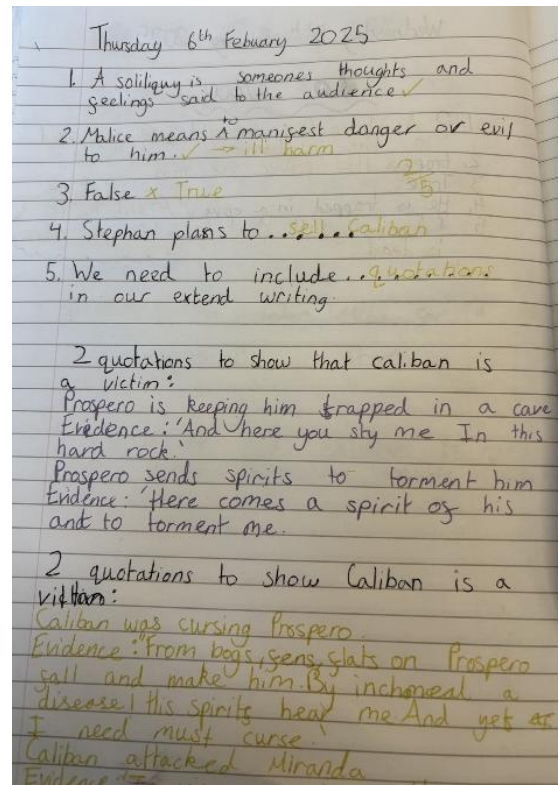 Thursday 6th Febuary 2025
1. A soliliquy is someones thoughts and
feelings said to the audience ✓
2. Malice means to manifest danger or evil
to him. ✓ → ill harm
3. False × True
2/5
4. Stephan plans to ...sell Caliban
5. We need to include ..quotations
in our extend writing.
2 quotations to show that caliban is
a victim:
Prospero is keeping him trapped in a cave
Evidence: 'And here you sty me In this
hard rock.'
Prospero sends spirits to torment him
Evidence: 'Here comes a spirit of his
and to torment me.
2 quotations to show Caliban is a
Caliban was cursing Prospero.
Evidence: 'From bogs, fens, flats on Prospero
fall and make him. By inchmeal a
disease! His spirits hear me And yet
I need must curse.'
Caliban attacked Miranda
Evidence